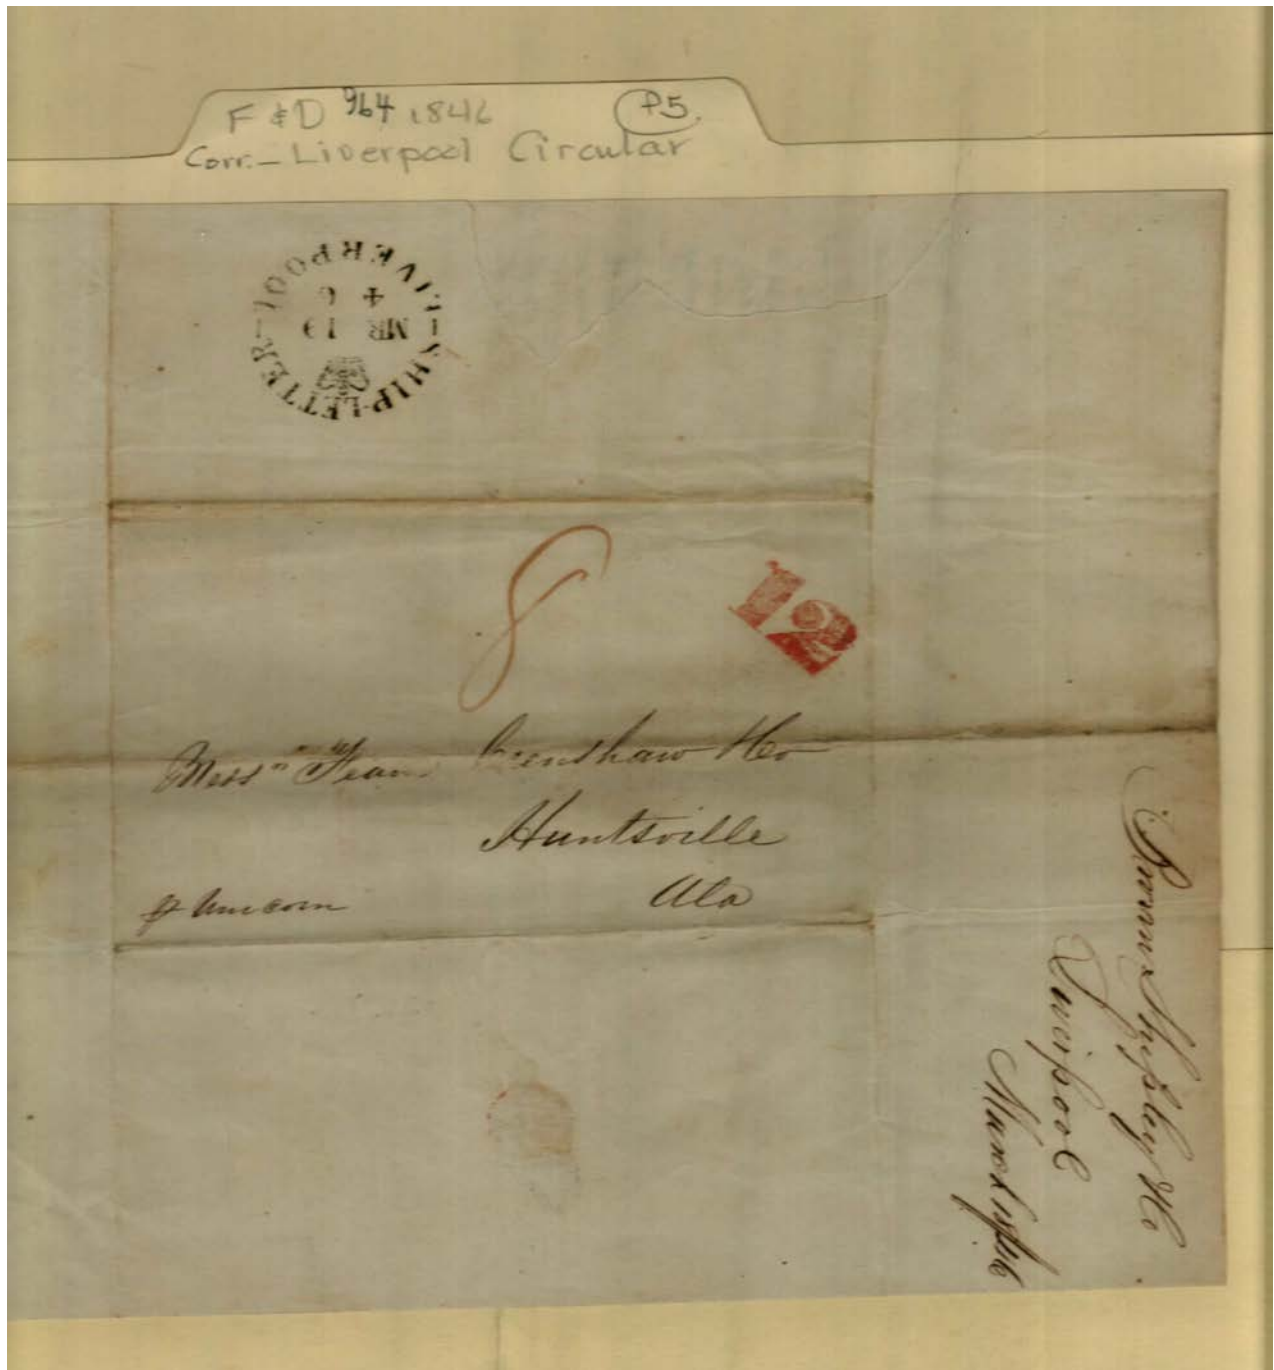 F & D 964 1846 P5.
Corr. - Liverpool Circular
LIVERPOOL
SHIP-LETTER
MR 19
4 6
8
12
Mess Crenshaw & Co
Huntsville
Ala
p Unicorn
Brown Shipley & Co
Liverpool
March 1846